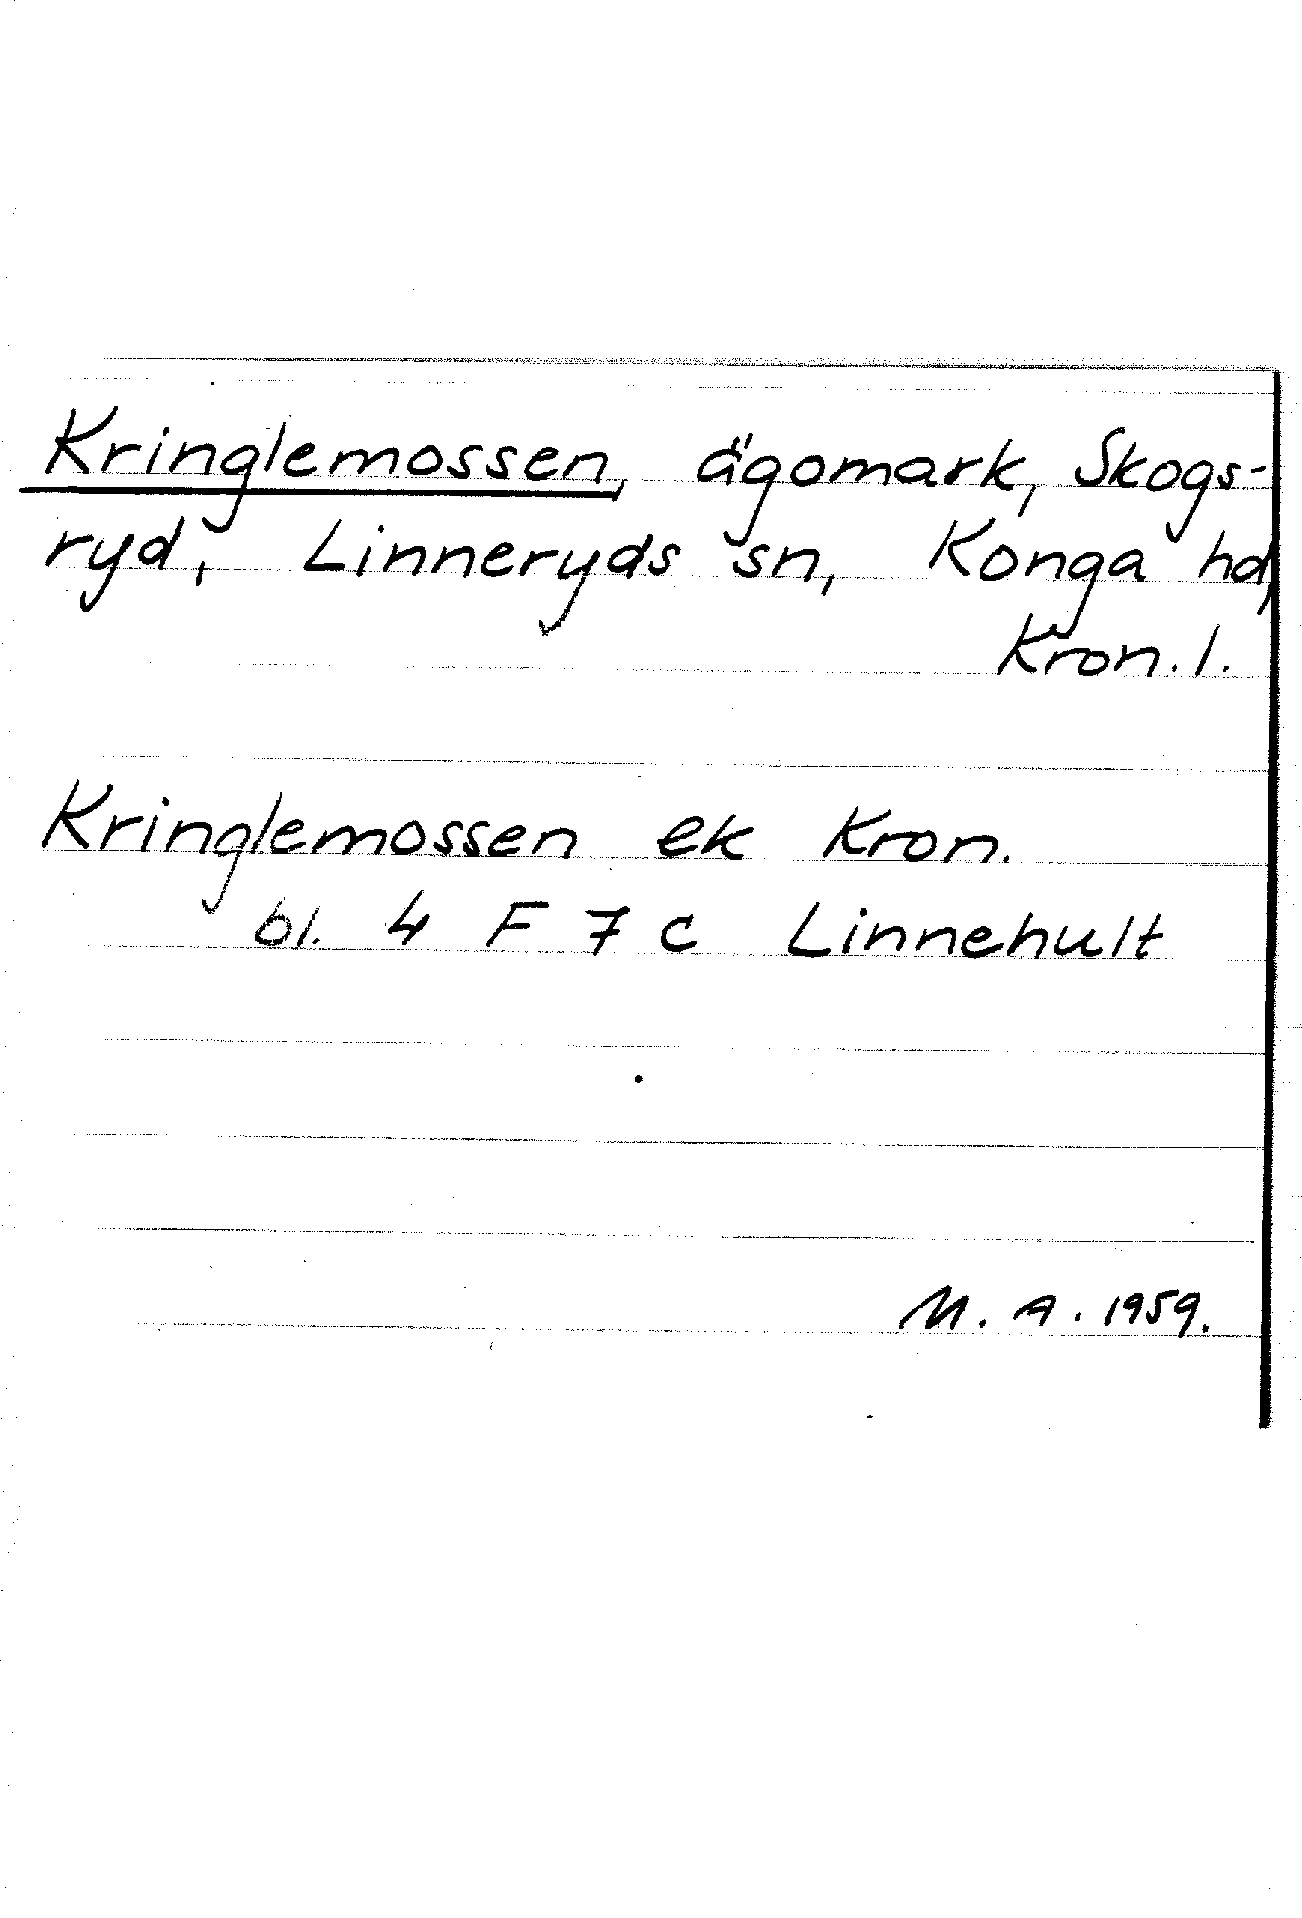 Kringlemossen, ägomark, Skogs-
ryd, Linneryds sn, Konga hd,
Kron. l.
Kringlemossen ek Kron.
bl. 4 F 7 c Linnehult
M. A. 1959.